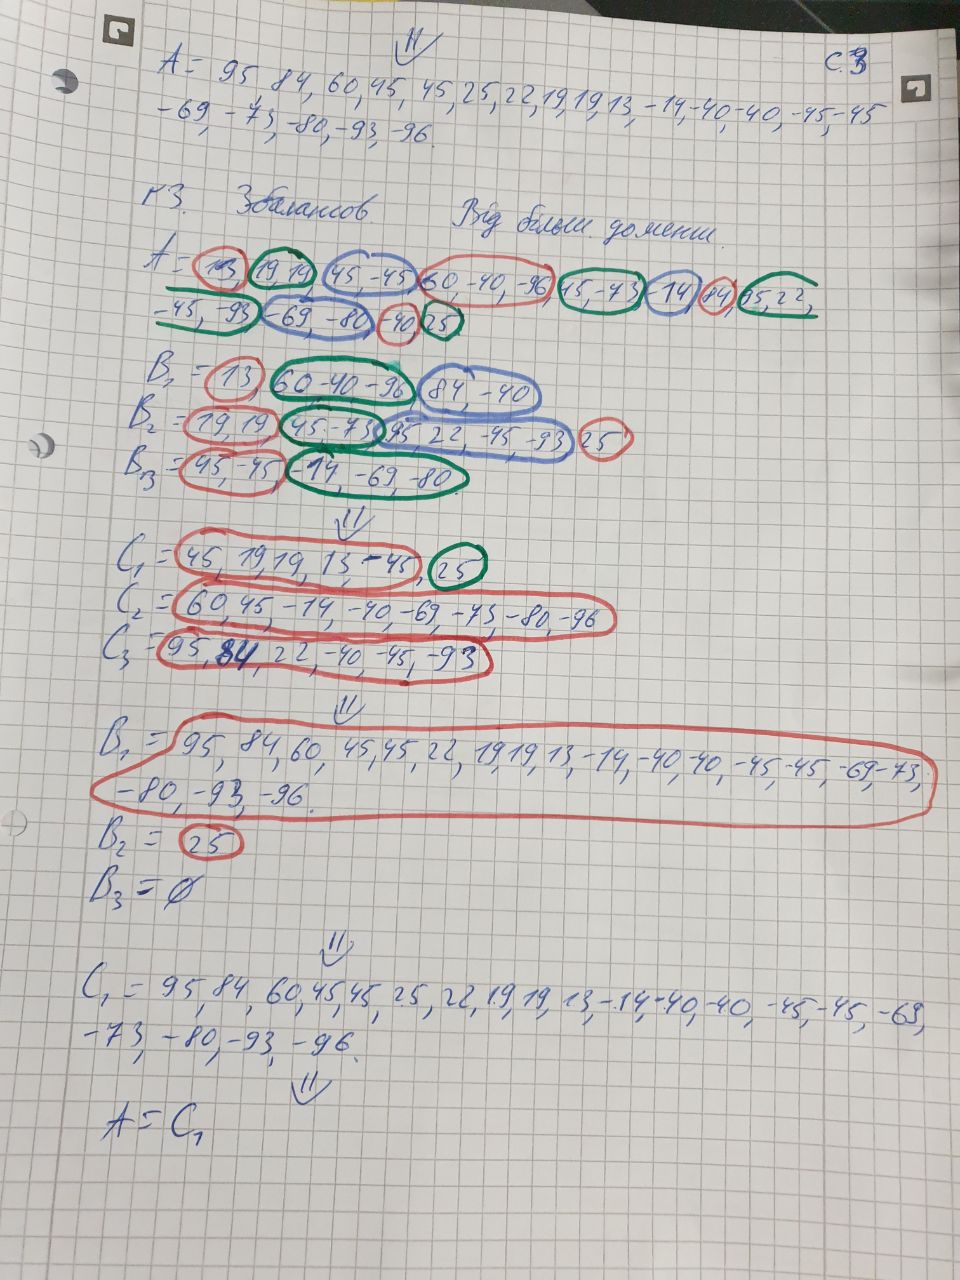 с.3
⇓
A = 95, 84, 60, 45, 45, 25, 22, 19, 19, 13, -14, -40, -40, -45, -45
-69, -73, -80, -93, -96.
Збалансов. Від більш. до менш.
A = 13, 19, 19, 45, -45, 60, -40, -96, 45, -73, -14, 84, 95, 22,
-45, -93, -69, -80, -40, 25
B₁ = 13, 60, -40, -96, 84, -40
B₂ = 19, 19, 45, -73, 95, 22, -45, -93, 25
B₃ = 45, -45, -14, -69, -80
⇓
C₁ = 45, 19, 19, 13, -45, 25
C₂ = 60, 45, -14, -40, -69, -73, -80, -96
C₃ = 95, 84, 22, -40, -45, -93
⇓
B₁ = 95, 84, 60, 45, 45, 22, 19, 19, 13, -14, -40, -40, -45, -45, -69, -73,
-80, -93, -96.
B₂ = 25
B₃ = ∅
⇓
C₁ = 95, 84, 60, 45, 45, 25, 22, 19, 19, 13, -14, -40, -40, -45, -45, -69,
-73, -80, -93, -96.
⇓
A = C₁